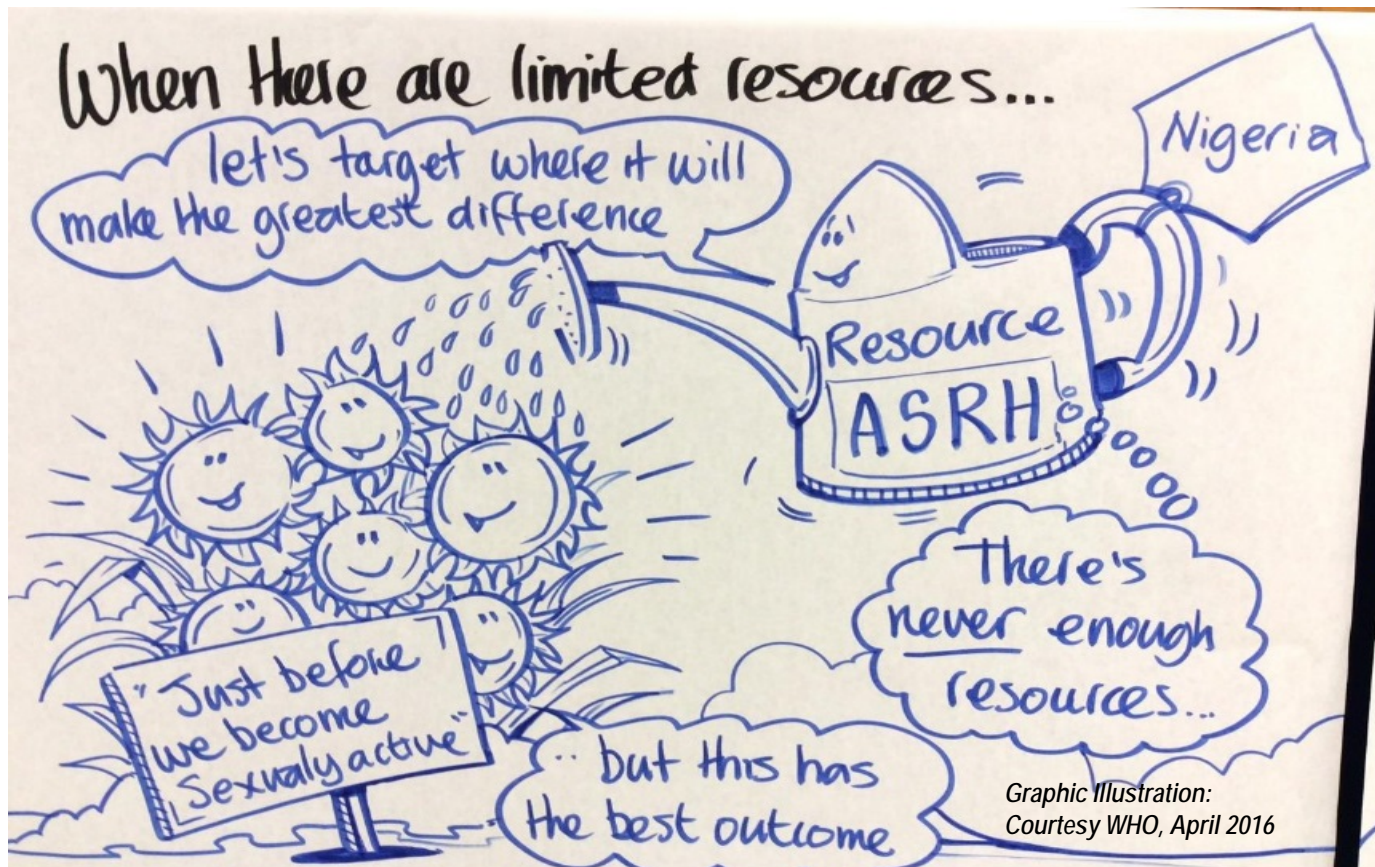 When there are limited resources...
let's target where it will
make the greatest difference
Nigeria
Resource
ASRH
There's
never enough
resources...
"Just before
we become
Sexualy active"
.. but this has
the best outcome
Graphic Illustration:
Courtesy WHO, April 2016